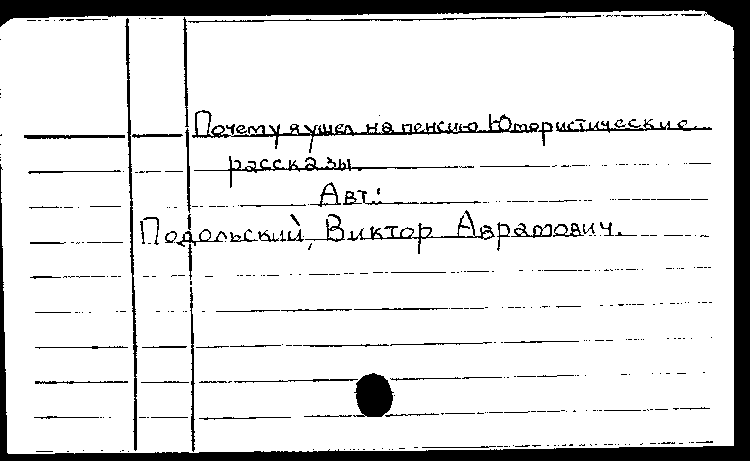 Почему я ушел на пенсию Юмористические
рассказы.
Авт.:
Подольский, Виктор Аврамович.